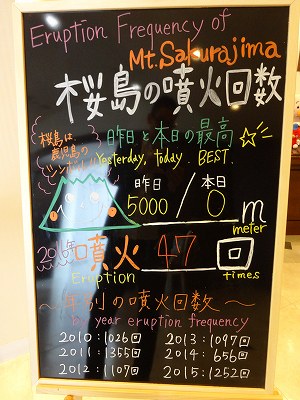 Eruption Frequency of
Mt.Sakurajima
桜島の噴火回数
桜島は、
鹿児島の
シンボル
昨日と本日の最高
Yesterday, today. BEST.
昨日 本日
5000 / 0 m
meter
2016年 噴火 47 回
Eruption times
~年別の噴火回数~
by year eruption frequency
2010:1026回 2013:1097回
2011:1355回 2014:656回
2012:1107回 2015:1252回